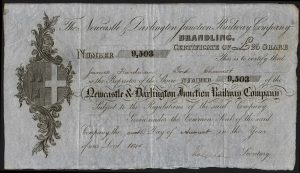 The Newcastle & Darlington Junction Railway Company
BRANDLING.
CERTIFICATE OF £25 SHARE
NUMBER 9,503 This is to certify that
is the Proprietor of the Share NUMBER 9,503 of the
Newcastle & Darlington Junction Railway Company
Subject to the Regulations of the said Company
Given under the Common Seal of the said
Company, the Day of August in the Year
of our Lord
Secretary